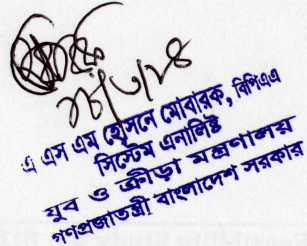 ২৫/৩/২৪
এ এস এম হোসনে মোবারক, বিপিএএ
সিস্টেম এনালিষ্ট
যুব ও ক্রীড়া মন্ত্রণালয়
গণপ্রজাতন্ত্রী বাংলাদেশ সরকার